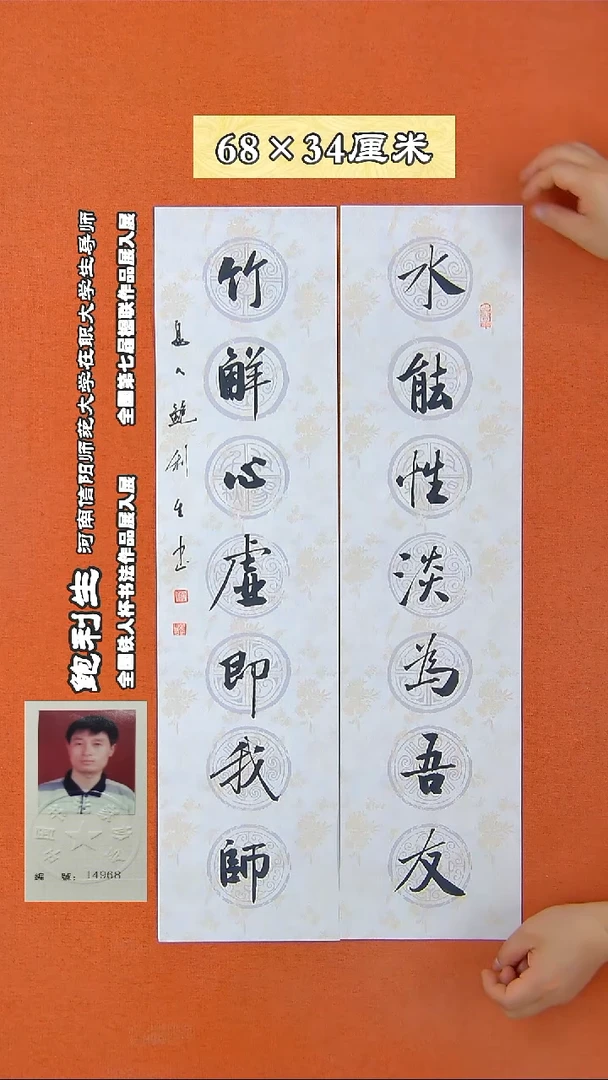 68×34厘米
水能性淡為吾友
竹觧心虚即我師
息人鮑利生书
鲍利生 河南信阳师范大学在职大学生导师
全國铁人杯书法作品展入展 全國第七届楹联作品展入展
编 號：14968